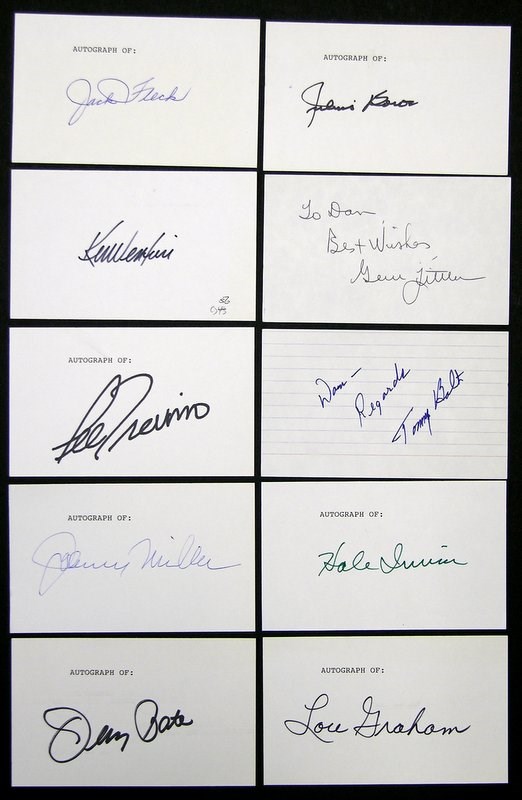 AUTOGRAPH OF:
Jack Fleck
AUTOGRAPH OF:
Julius Boros
Ken Venturi
To Dan
Best Wishes
Gene Littler
AUTOGRAPH OF:
Lee Trevino
Dan -
Regards
Tommy Bolt
AUTOGRAPH OF:
Johnny Miller
AUTOGRAPH OF:
Hale Irwin
AUTOGRAPH OF:
Jerry Pate
AUTOGRAPH OF:
Lou Graham